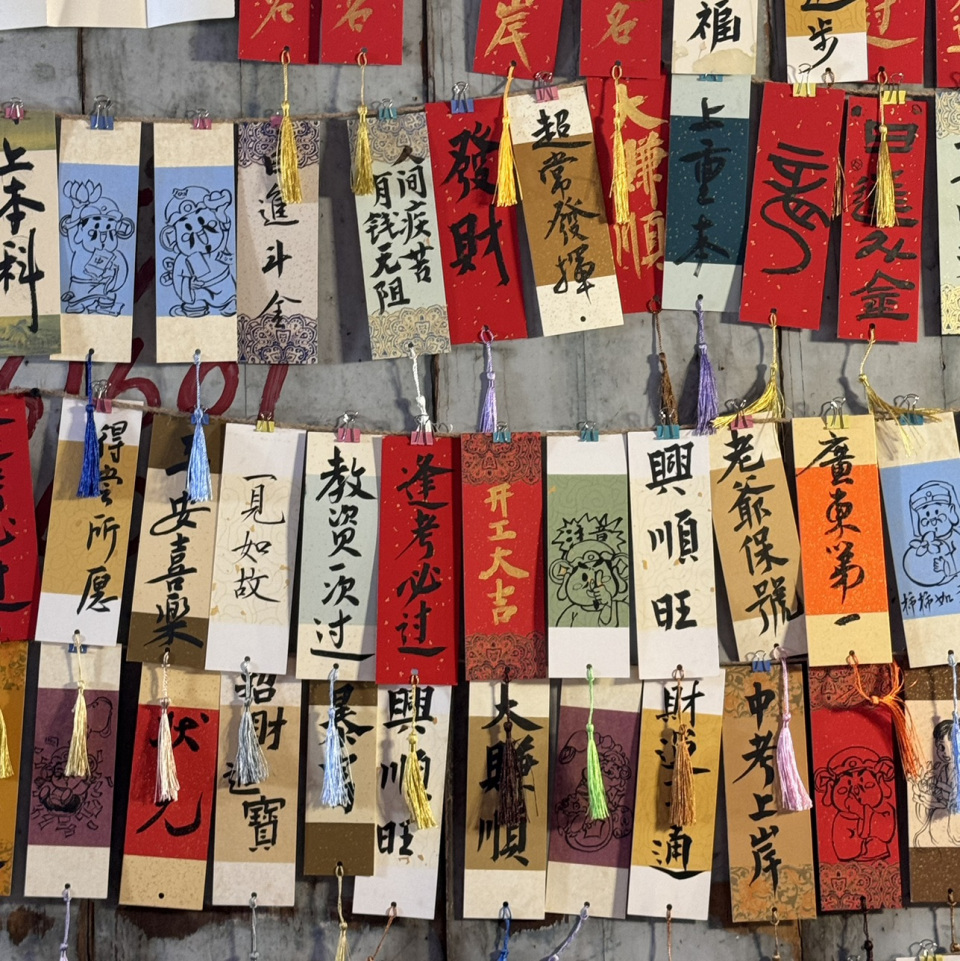 名
名
岸
名
福
步
过
上本科
日進斗金
人间疾苦
有钱无阻
發財
超常發揮
大賺順
上重本
日進斗金
得偿所愿
安喜樂
一見如故
教资一次过
逢考必过
开工大吉
注音
興順旺
老爺保號
廣東第一
柿柿如
状元
招財進寶
暴富
興順旺
大賺順
財運亨通
中考上岸